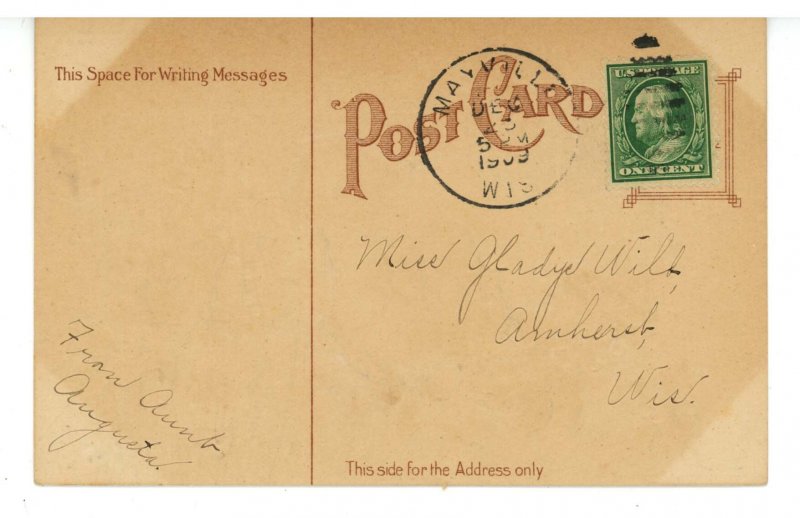 This Space For Writing Messages
POST CARD
MAYVILLE
DEC
5 PM
1909
WIS
U.S. POSTAGE
ONE CENT
Miss Gladys Wilt,
Amherst,
Wis.
From Aunt
Augusta.
This side for the Address only